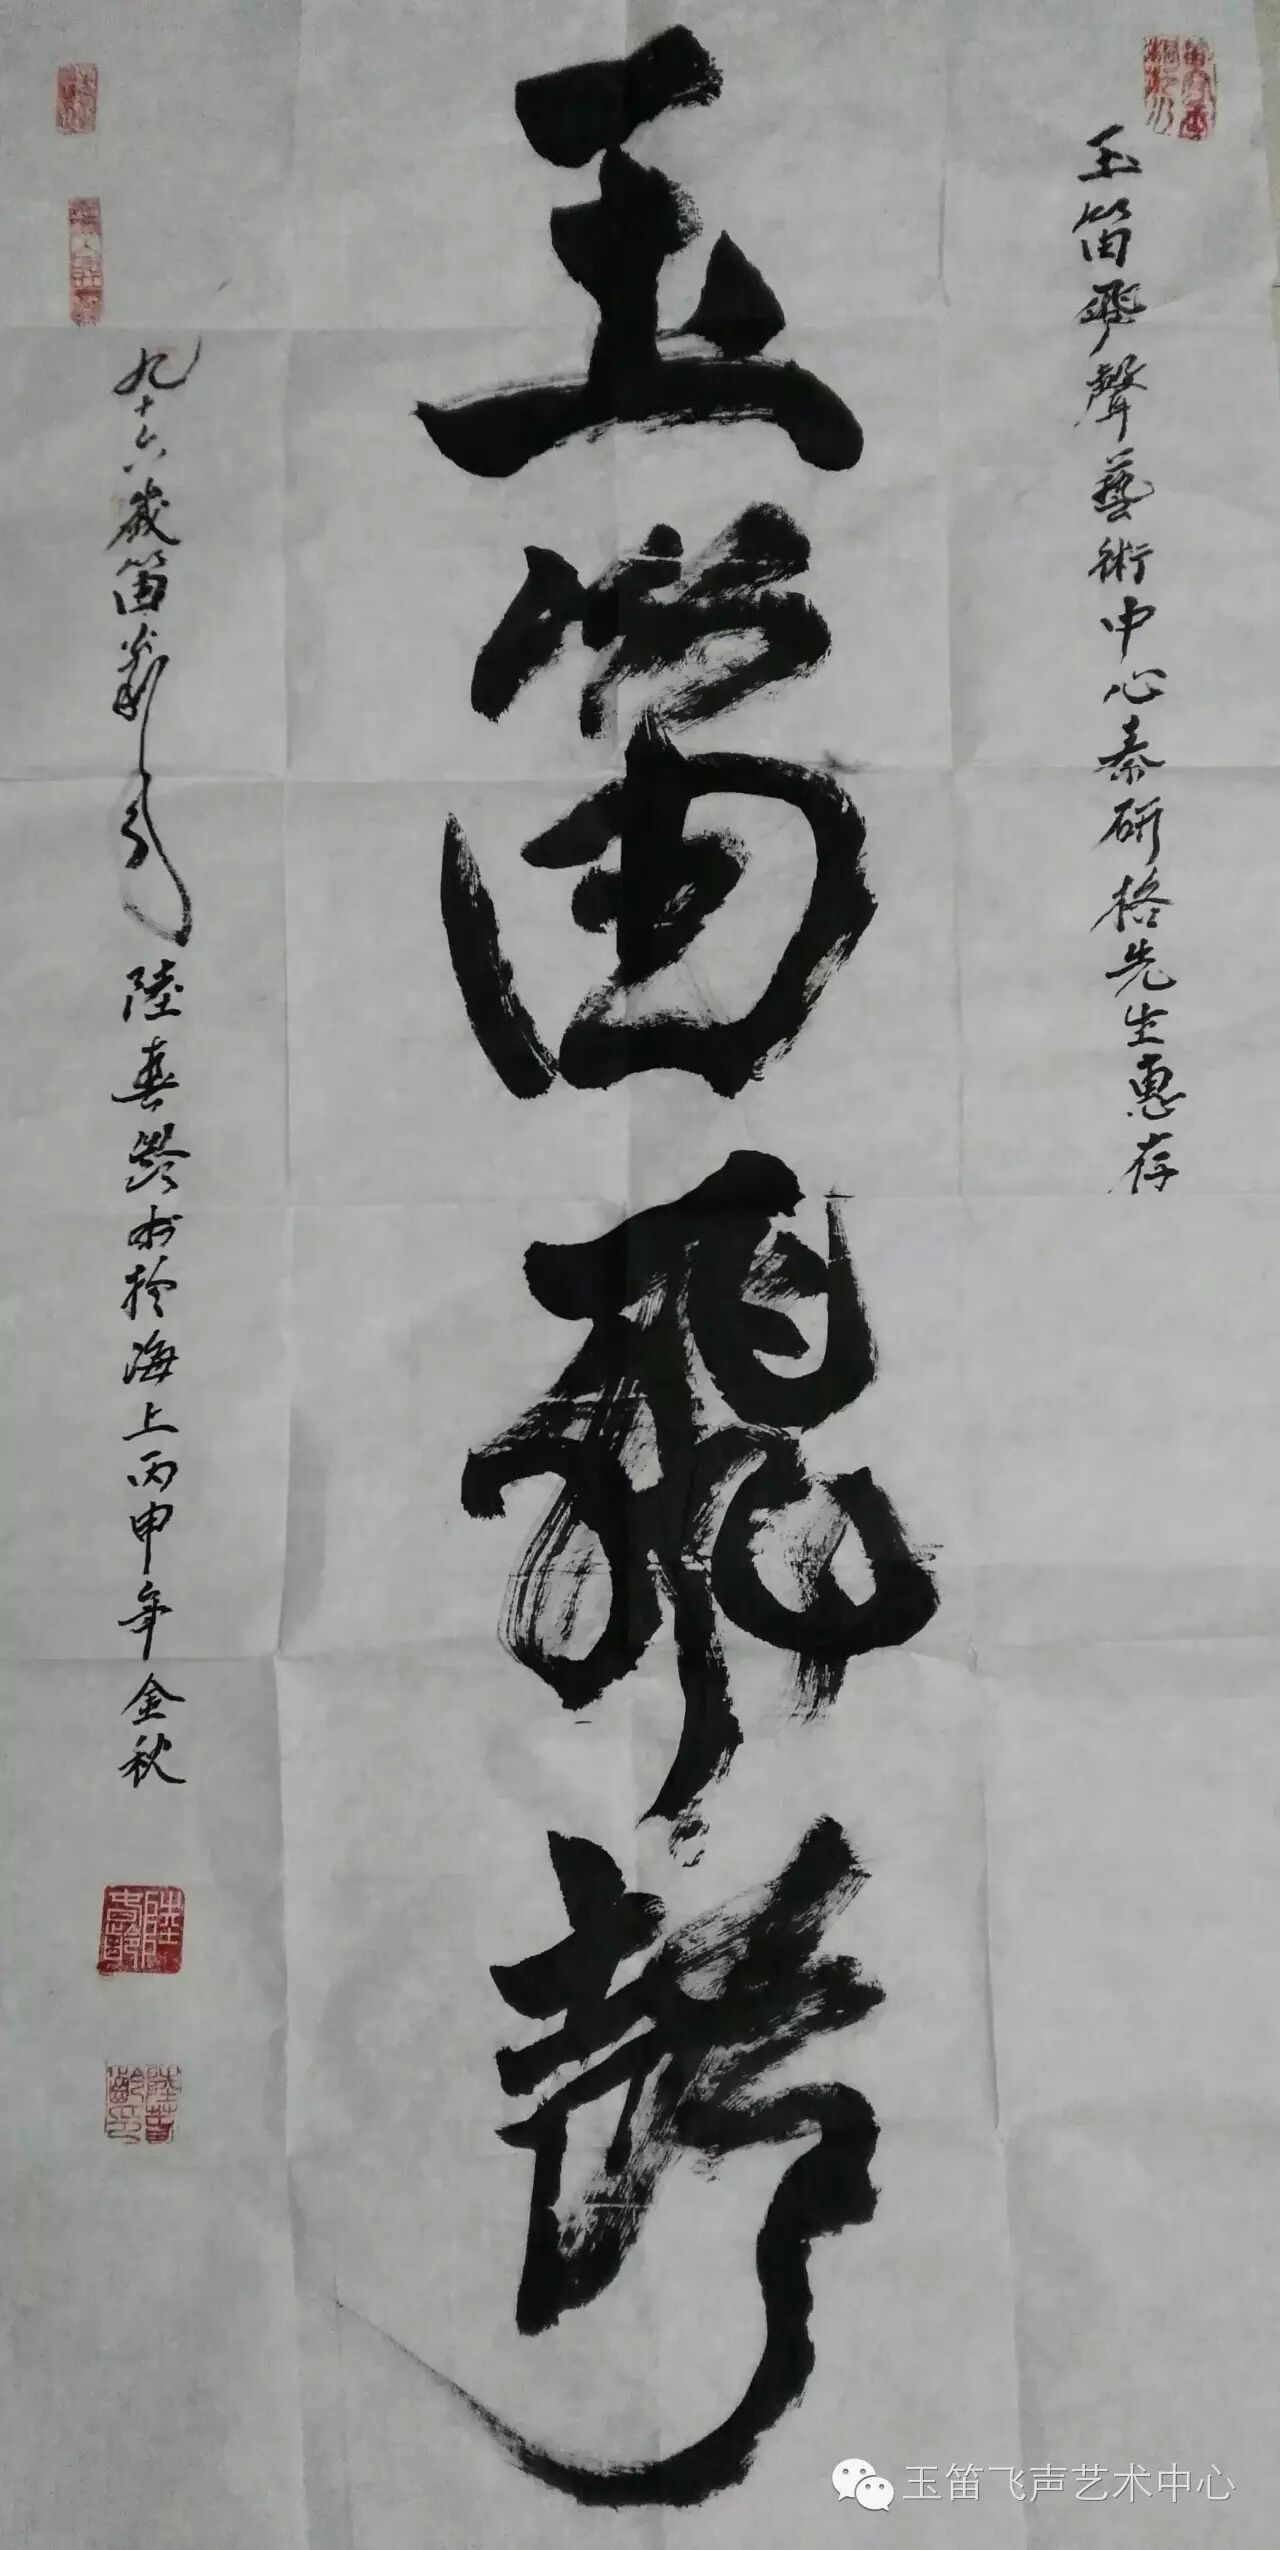 玉笛飛聲藝術中心秦研格先生惠存
玉笛飛聲
九十六歲笛翁
陸春齡書於海上丙申年金秋
陸春齡
玉笛飞声艺术中心